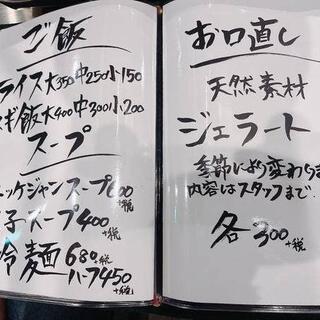 ご飯
ライス大350中250小150
ネギ飯大400中300小200
スープ
ユッケジャンスープ600
+税
子スープ400
+税
冷麺680
+税
ハーフ450
+税
お口直し
天然素材
ジェラート
季節により変わりま
内容はスタッフまで
各300
+税